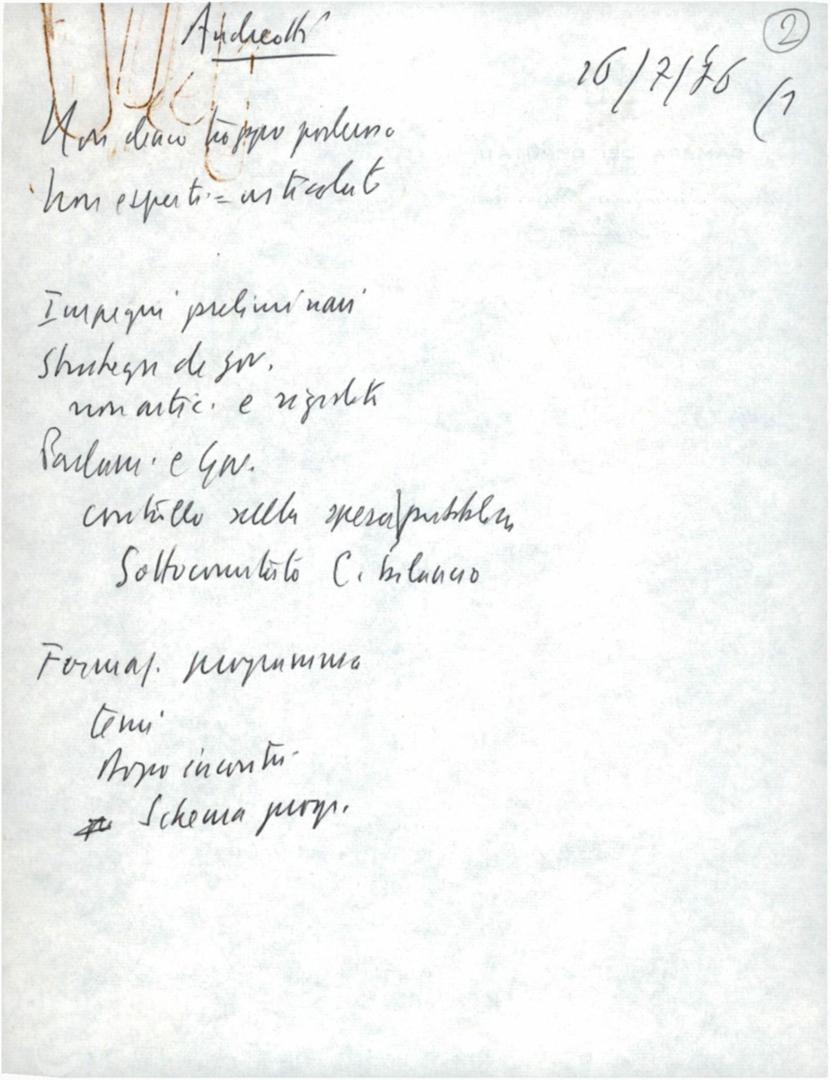 Andreotti
2
16/7/76
(1
Non troppo
Non esperti = articolati
Impegni preliminari
Strategia di gov.
non artic. e
Parlam. e Gov.
controllo sulla spesa pubblica
Sottocomitato C. bilancio
Formaz. programma
temi
dopo incontri
Schema progr.